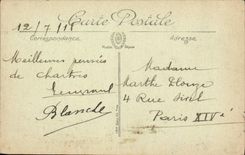 Carte Postale
12/7/11
Correspondance
Adresse
Meilleures pensées
de Chartres
Blanche
Madame
Marthe
4 Rue
Paris XIVè